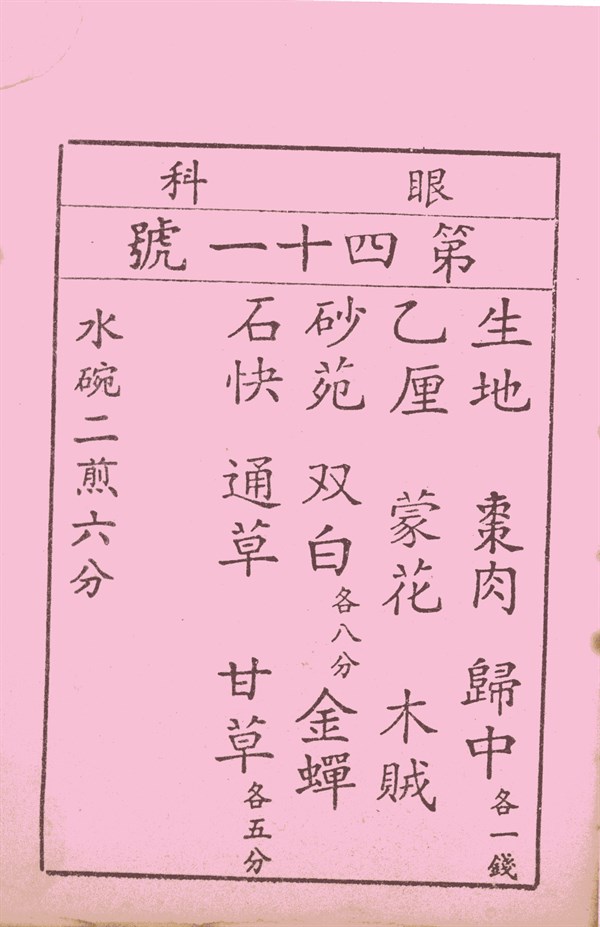 眼科
第四十一號
生地 棗肉 歸中各一錢
乙厘 蒙花 木賊
砂苑 双白各八分 金蟬
石快 通草 甘草各五分
水碗二煎六分